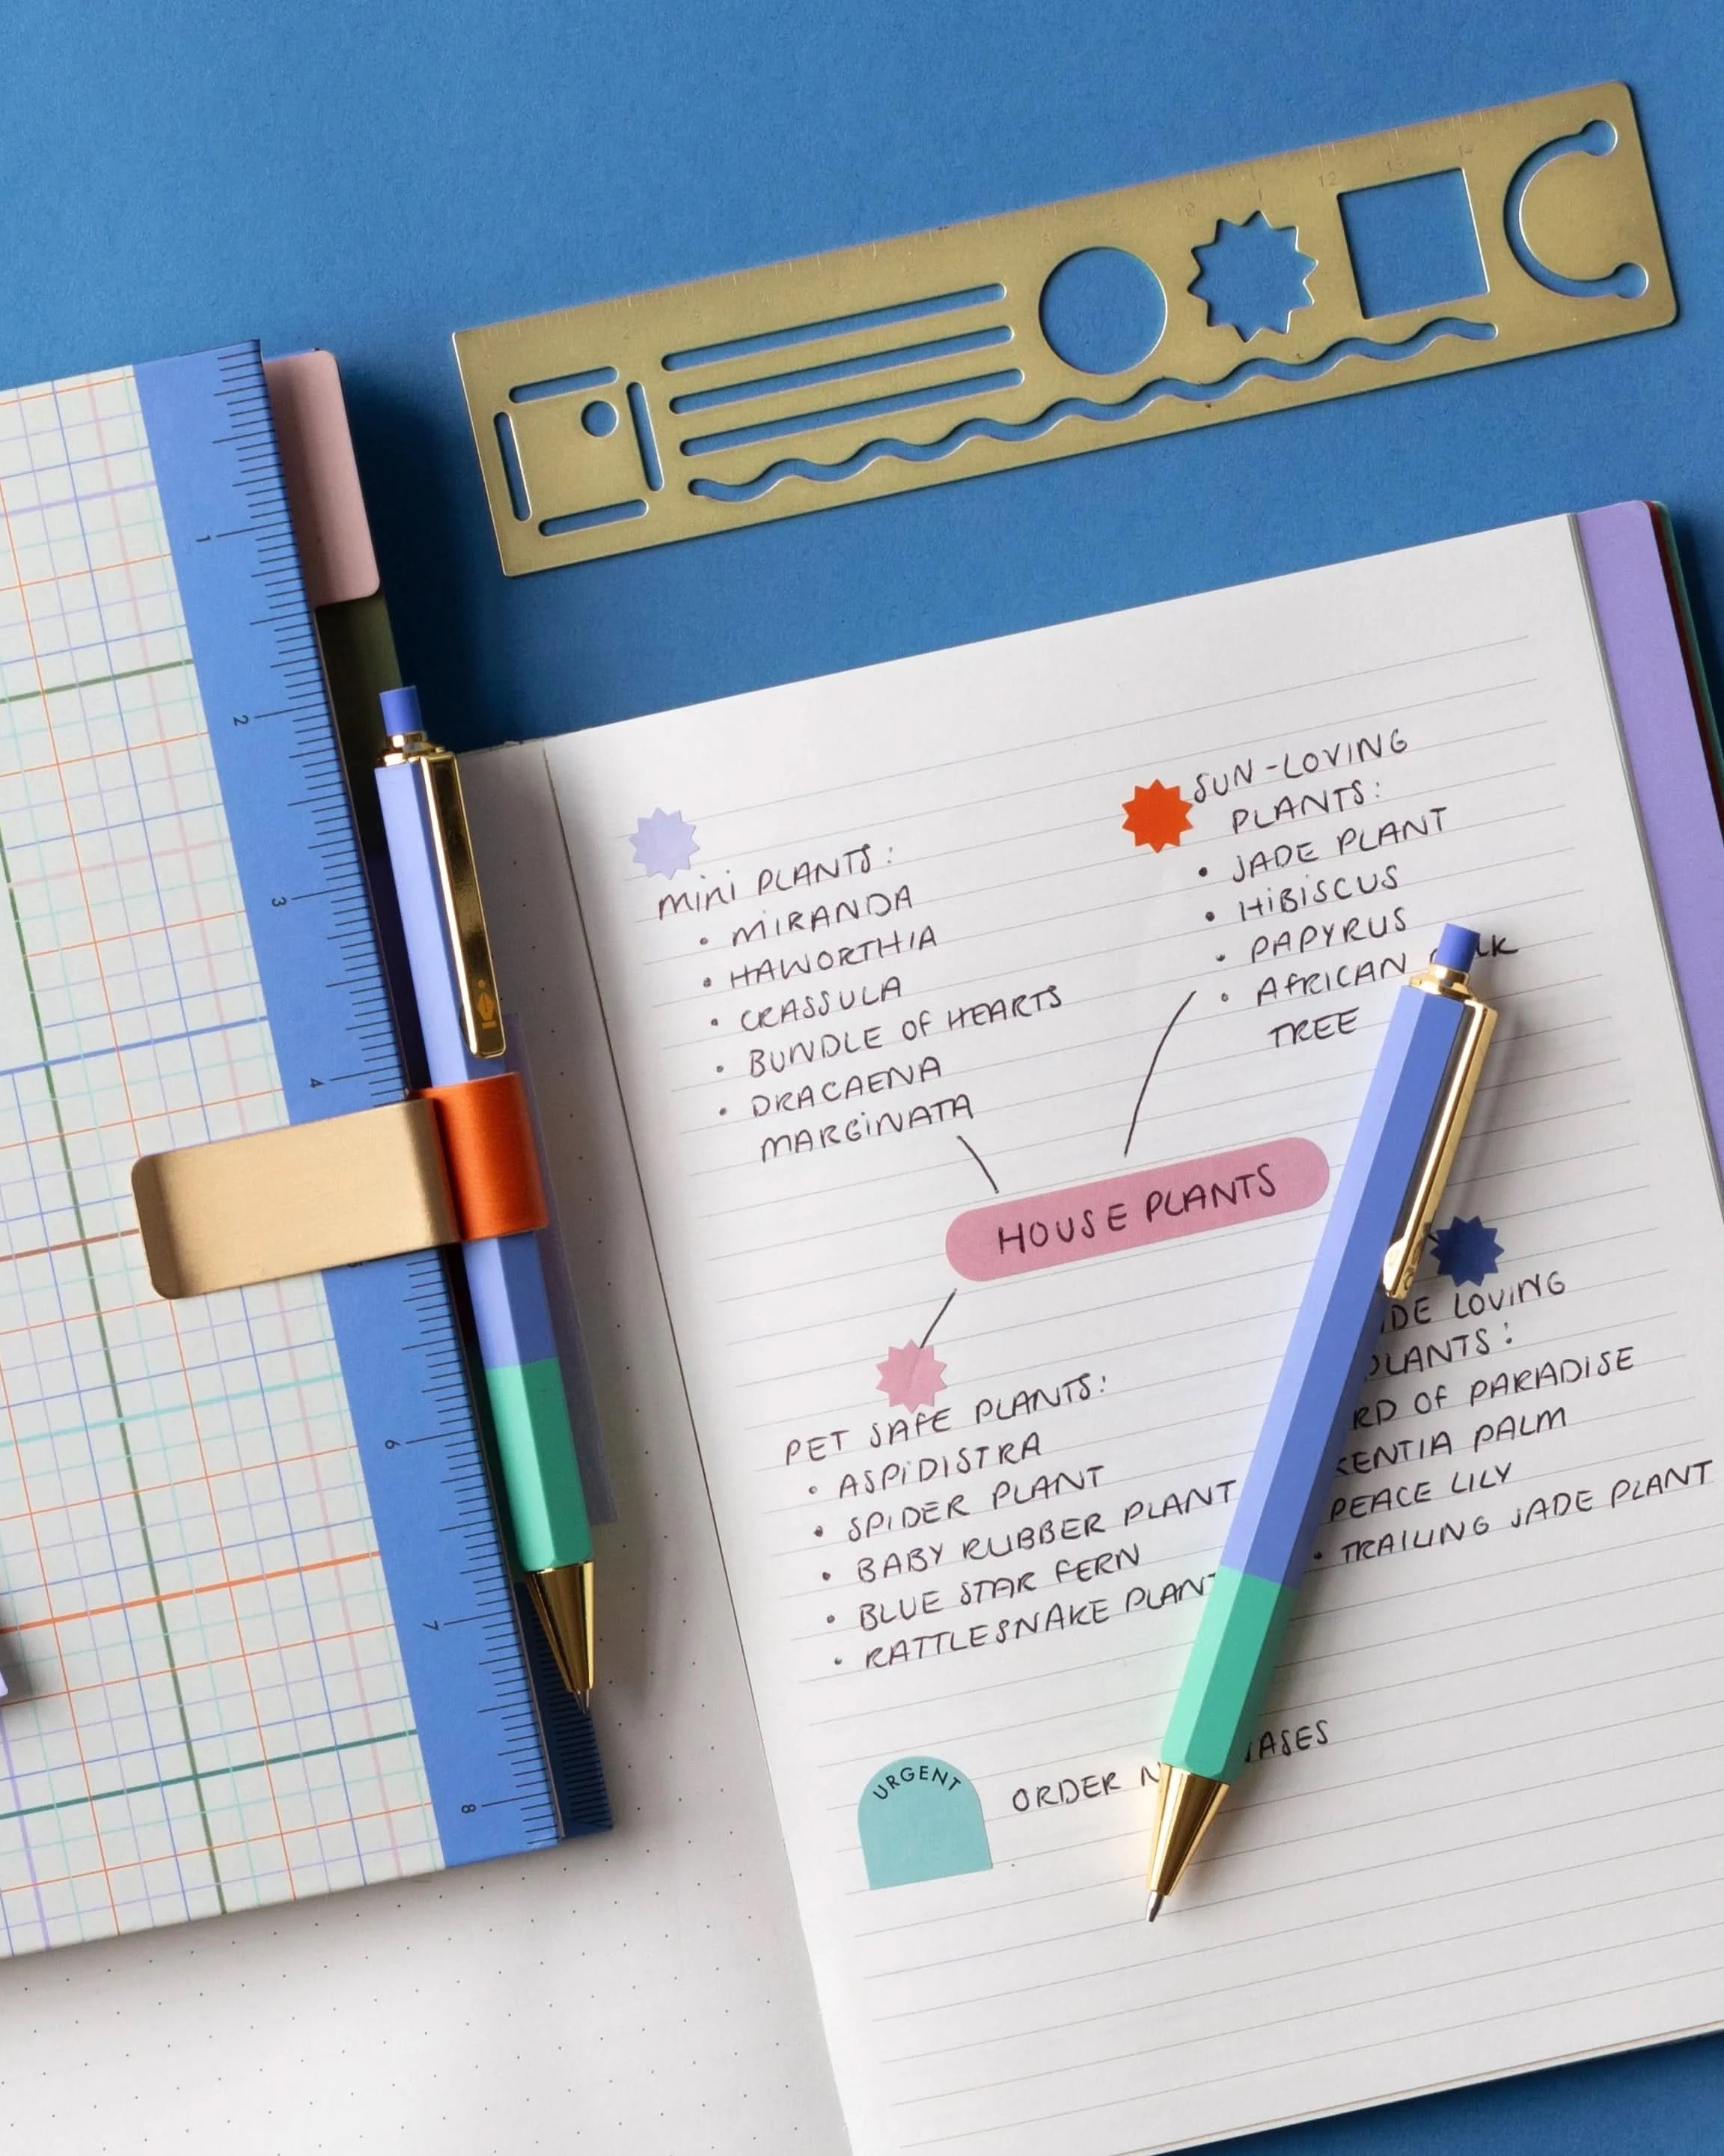 1
2
3
4
5
6
7
8
10
12
13
14
MINI PLANTS:
• MIRANDA
• HAWORTHIA
• CRASSULA
• BUNDLE OF HEARTS
• DRACAENA
MARGINATA
SUN-LOVING
PLANTS:
• JADE PLANT
• HIBISCUS
• PAPYRUS
• AFRICAN
TREE
HOUSE PLANTS
PET SAFE PLANTS:
• ASPIDISTRA
• SPIDER PLANT
• BABY RUBBER PLANT
• BLUE STAR FERN
• RATTLESNAKE PLANT
LOVING
PLANTS:
OF PARADISE
KENTIA PALM
PEACE LILY
• TRAILING JADE PLANT
URGENT
ORDER